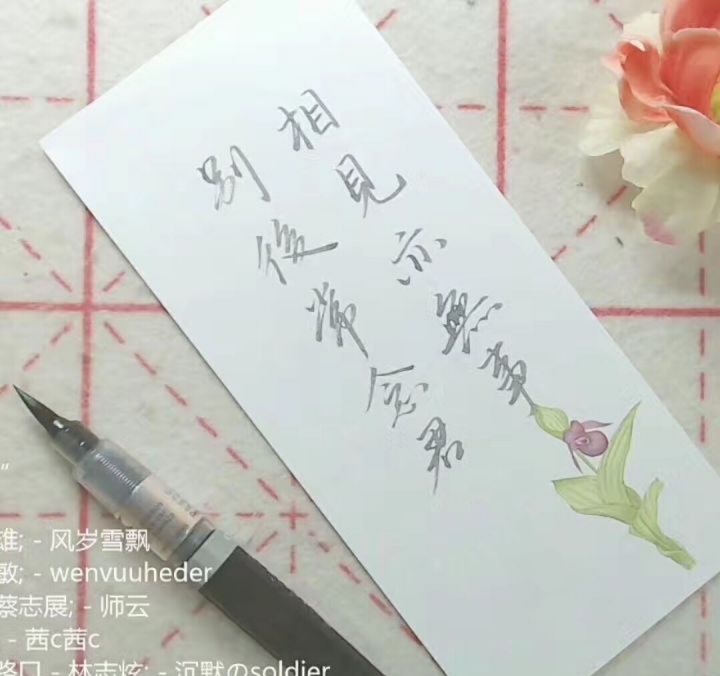 相見亦無事
別後常念君
"
雄; - 风岁雪飘
敏; - wenvuuheder
蔡志展; - 师云
- 茜c茜c
路口 - 林志炫; - 沉默のsoldier